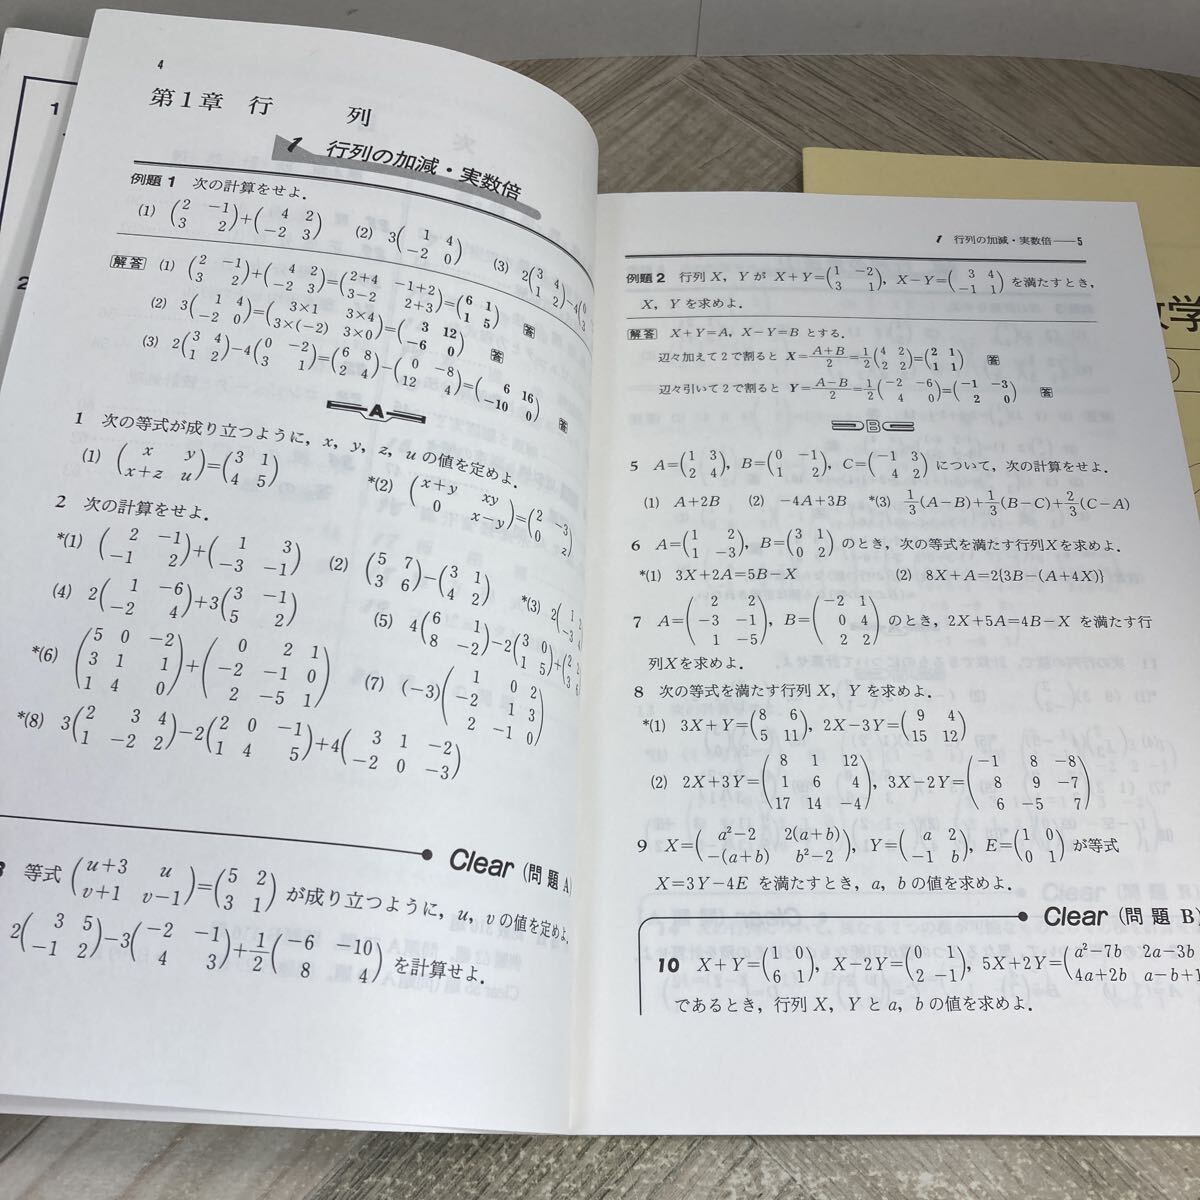 4
第1章 行 列
1 行列の加減・実数倍
例題 1 次の計算をせよ.
(1) (2 −1; 3 2)+(4 2; −2 3) (2) 3(1 4; −2 0) (3) 2(3 4; 1 2)−4(0
解答 (1) (2 −1; 3 2)+(4 2; −2 3)=(2+4 −1+2; 3−2 2+3)=(6 1; 1 5) 答
(2) 3(1 4; −2 0)=(3×1 3×4; 3×(−2) 3×0)=(3 12; −6 0) 答
(3) 2(3 4; 1 2)−4(0 −2; 3 1)=(6 8; 2 4)−(0 −8; 12 4)=(6 16; −10 0) 答
A
1 次の等式が成り立つように, x, y, z, u の値を定めよ.
(1) (x y; x+z u)=(3 1; 4 5) *(2) (x+y xy; 0 x−y)=(2 −3; 0 z)
2 次の計算をせよ.
*(1) (2 −1; −1 2)+(1 3; −3 −1) (2) (5 7; 3 6)−(3 1; 4 2) *(3) 2(1; −3
(4) 2(1 −6; −2 4)+3(3 −1; 5 2) (5) 4(6 1; 8 −1)−2(3 0; 1 5)+(2; 3
*(6) (5 0 −2; 3 1 1; 1 4 0)+(0 2 1; −2 −1 0; 2 −5 1) (7) (−3)(1 0 2; −2 1 3; 2 −1 0)
*(8) 3(2 3 4; 1 −2 2)−2(2 0 −1; 1 4 5)+4(3 1 −2; −2 0 −3)
Clear (問題A)
3 等式 (u+3 u; v+1 v−1)=(5 2; 3 1) が成り立つように, u, v の値を定めよ.
2(3 5; −1 2)−3(−2 −1; 4 3)+1/2(−6 −10; 8 4) を計算せよ.
1 行列の加減・実数倍——5
例題 2 行列 X, Y が X+Y=(1 −2; 3 1), X−Y=(3 4; −1 1) を満たすとき,
X, Y を求めよ.
解答 X+Y=A, X−Y=B とする.
辺々加えて2で割ると X=(A+B)/2=1/2(4 2; 2 2)=(2 1; 1 1) 答
辺々引いて2で割ると Y=(A−B)/2=1/2(−2 −6; 4 0)=(−1 −3; 2 0) 答
B
5 A=(1 3; 2 4), B=(0 −1; 1 2), C=(−1 3; 4 2) について, 次の計算をせよ.
(1) A+2B (2) −4A+3B *(3) 1/3(A−B)+1/3(B−C)+2/3(C−A)
6 A=(1 2; 1 −3), B=(3 1; 0 2) のとき, 次の等式を満たす行列Xを求めよ.
*(1) 3X+2A=5B−X (2) 8X+A=2{3B−(A+4X)}
7 A=(2 2; −3 −1; 1 −5), B=(−2 1; 0 4; 2 2) のとき, 2X+5A=4B−X を満たす行
列Xを求めよ.
8 次の等式を満たす行列 X, Y を求めよ.
*(1) 3X+Y=(8 6; 5 11), 2X−3Y=(9 4; 15 12)
(2) 2X+3Y=(8 1 12; 1 6 4; 17 14 −4), 3X−2Y=(−1 8 −8; 8 9 −7; 6 −5 7)
9 X=(a²−2 2(a+b); −(a+b) b²−2), Y=(a 2; −1 b), E=(1 0; 0 1) が等式
X=3Y−4E を満たすとき, a, b の値を求めよ.
Clear (問題B)
10 X+Y=(1 0; 6 1), X−2Y=(0 1; 2 −1), 5X+2Y=(a²−7b 2a−3b; 4a+2b a−b+1
であるとき, 行列 X, Y と a, b の値を求めよ.
数学